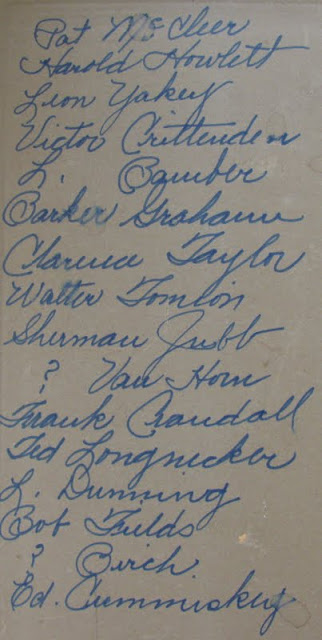 Pat McCleer
Harold Howlett
Leon Yakey
Victor Crittenden
L. Bamber
Barker Grahame
Clarence Taylor
Walter Tomlin
Sherman Jubb
? Van Horn
Frank Crandall
Ted Longnecker
L. Dunning
Bob Fields
? Birch
Ed. Cummiskey